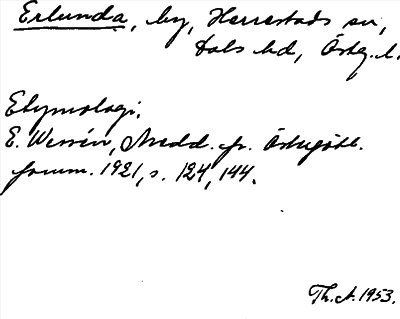 Erlunda, by, Herrestads sn,
Dals hd, Östg. l.
Etymologi:
E. Wessén, Medd. fr. Östergötl.
fornm. 1921, s. 124, 144.
Th. A. 1953.